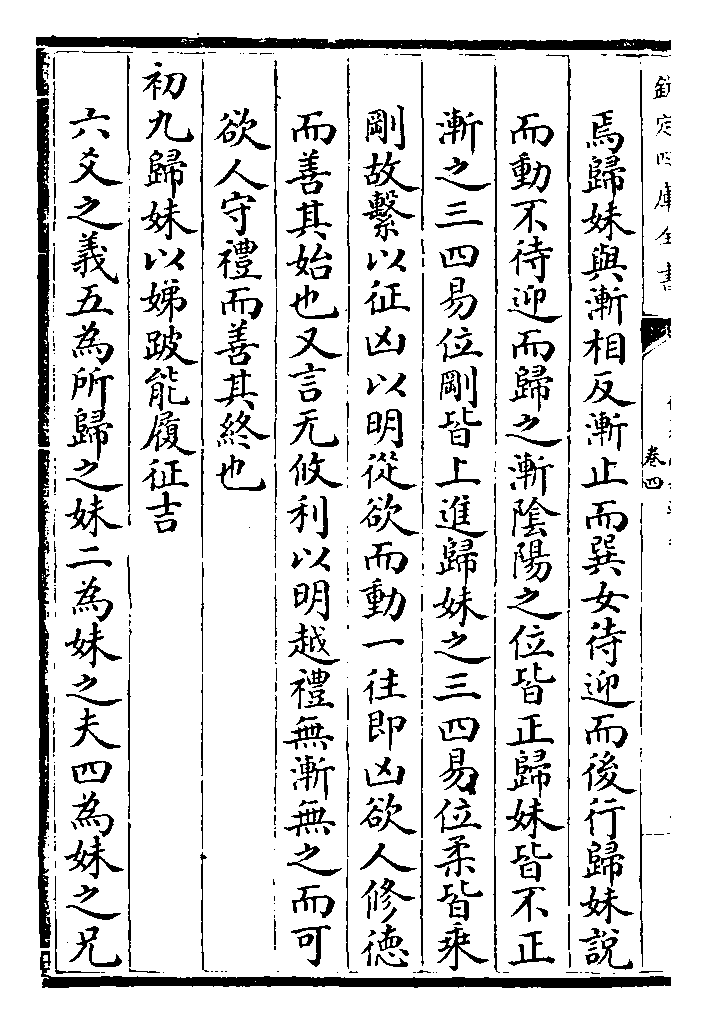 欽定四庫全書
卷四
焉歸妹與漸相反漸止而巽女待迎而後行歸妹說
而動不待迎而歸之漸陰陽之位皆正歸妹皆不正
漸之三四易位剛皆上進歸妹之三四易位柔皆乘
剛故繫以征凶以明從欲而動一往即凶欲人修德
而善其始也又言无攸利以明越禮無漸無之而可
欲人守禮而善其終也
初九歸妹以娣跛能履征吉
六爻之義五為所歸之妹二為妹之夫四為妹之兄